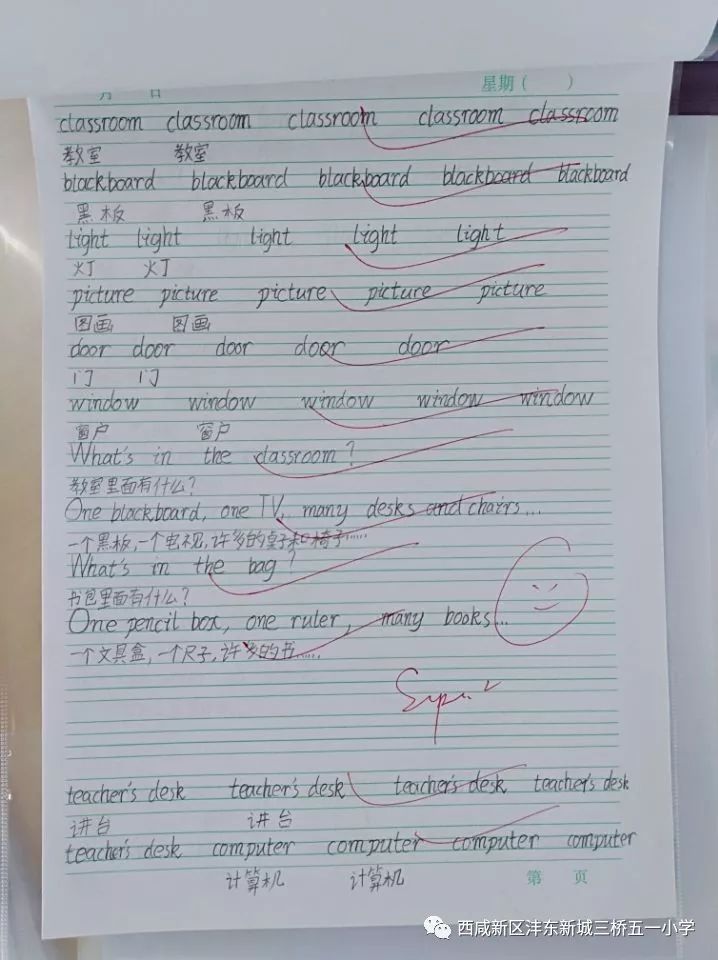 月 日 星期( )
classroom classroom classroom classroom classroom
教室 教室
blackboard blackboard blackboard blackboard blackboard
黑板 黑板
light light light light light
灯 灯
picture picture picture picture picture
图画 图画
door door door door door
门 门
window window window window window
窗户 窗户
What's in the classroom?
教室里面有什么?
One blackboard, one TV, many desks and chairs...
一个黑板,一个电视,许多的桌子和椅子......
What's in the bag?
书包里面有什么?
One pencil box, one ruler, many books...
一个文具盒,一个尺子,许多的书......
teacher's desk teacher's desk teacher's desk teacher's desk
讲台 讲台
teacher's desk computer computer computer computer
计算机 计算机
第 页
西咸新区沣东新城三桥五一小学